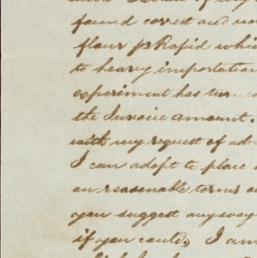 found correct and
flour p Rapid whi
to heavy importation
experiment has turn
the Invoice amount.
with my request of ad
I can adopt to place
on reasonable terms
you suggest any way
if you could, I am